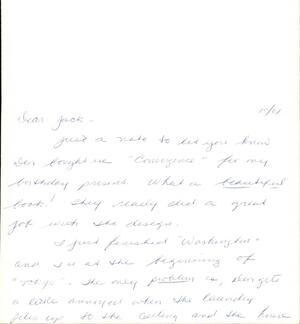 10/21
Dear Jack -
Just a note to let you know
Den bought me "Convergence" for my
birthday present. What a beautiful
book! They really did a great
job with the design.
I just finished "Washington"
and I'm at the beginning of
"Tokyo". The only problem is, Den gets
a little annoyed when the laundry
piles up to the ceiling and the house